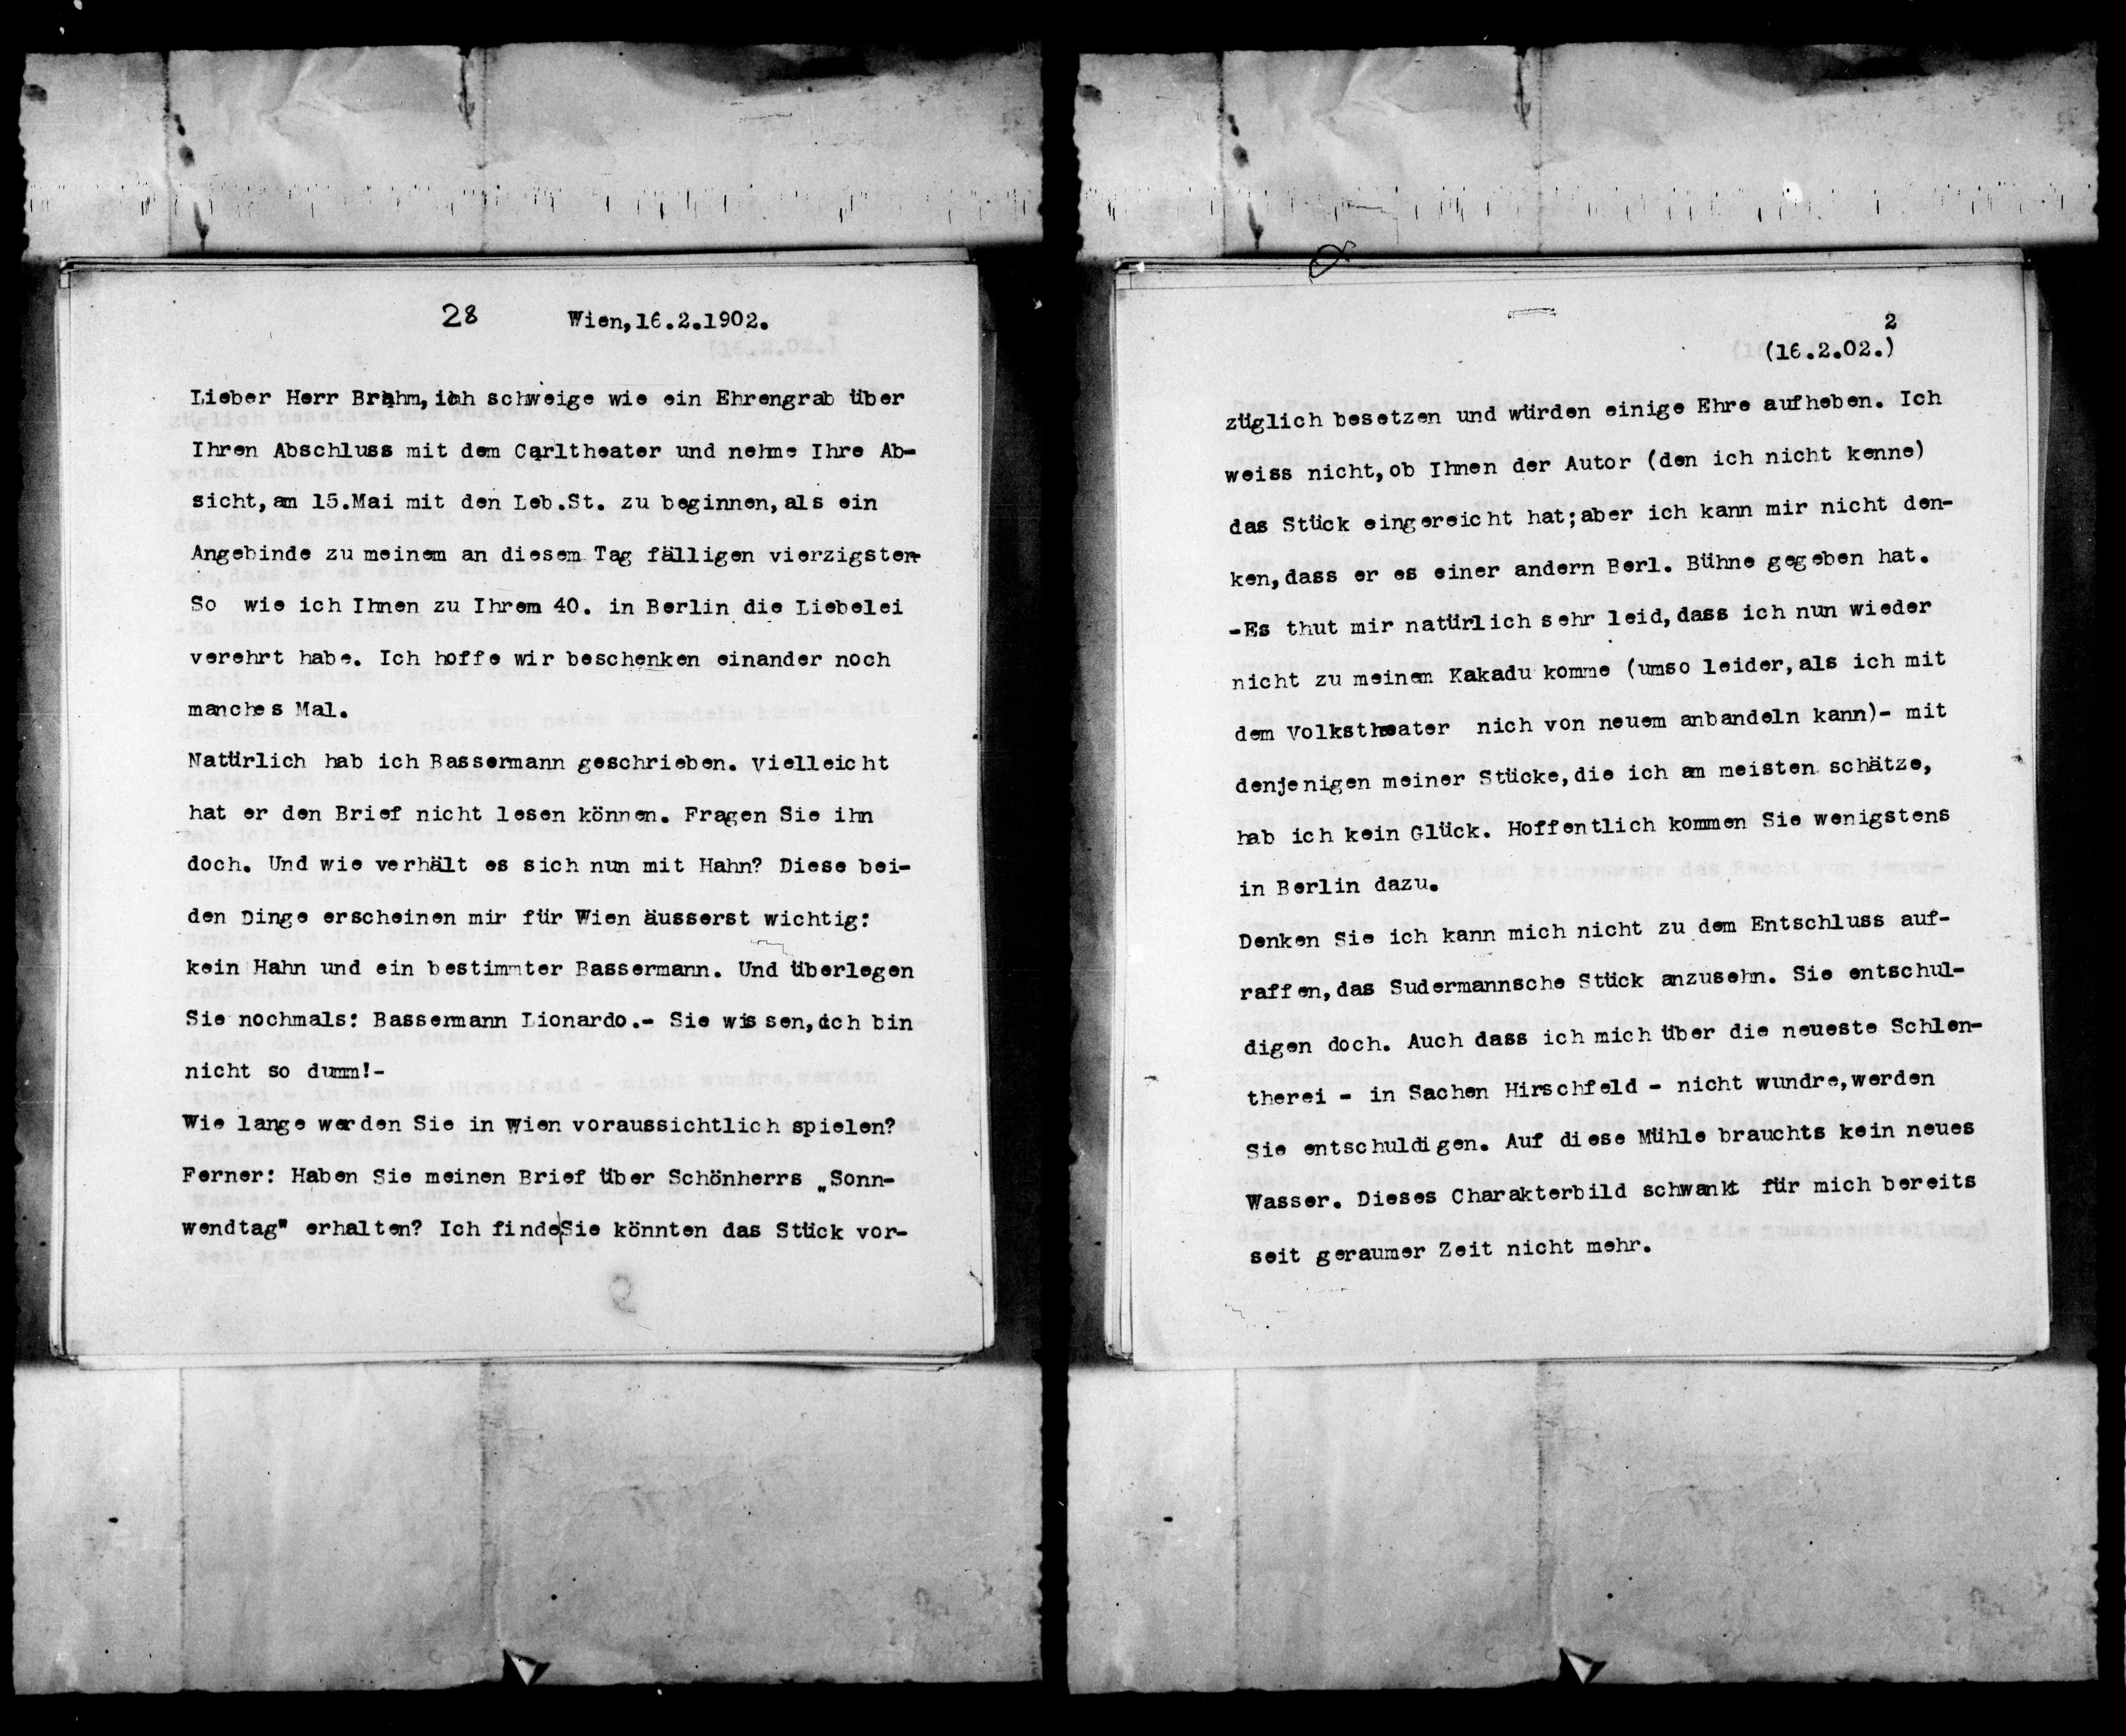 28 Wien,16.2.1902.
Lieber Herr Brahm, ich schweige wie ein Ehrengrab über
Ihren Abschluss mit dem Carltheater und nehme Ihre Ab-
sicht, am 15.Mai mit den Leb.St. zu beginnen, als ein
Angebinde zu meinem an diesem Tag fälligen vierzigsten
So wie ich Ihnen zu Ihrem 40. in Berlin die Liebelei
verehrt habe. Ich hoffe wir beschenken einander noch
manches Mal.
Natürlich hab ich Bassermann geschrieben. Vielleicht
hat er den Brief nicht lesen können. Fragen Sie ihn
doch. Und wie verhält es sich nun mit Hahn? Diese bei-
den Dinge erscheinen mir für Wien äusserst wichtig:
kein Hahn und ein bestimmter Bassermann. Und überlegen
Sie nochmals: Bassermann Lionardo.- Sie wissen, ich bin
nicht so dumm!-
Wie lange werden Sie in Wien voraussichtlich spielen?
Ferner: Haben Sie meinen Brief über Schönherrs „Sonn-
wendtag" erhalten? Ich finde|Sie könnten das Stück vor-
2
(16.2.02.)
züglich besetzen und würden einige Ehre aufheben. Ich
weiss nicht, ob Ihnen der Autor (den ich nicht kenne)
das Stück eingereicht hat; aber ich kann mir nicht den-
ken, dass er es einer andern Berl. Bühne gegeben hat.
-Es thut mir natürlich sehr leid, dass ich nun wieder
nicht zu meinem Kakadu komme (umso leider, als ich mit
dem Volkstheater nich von neuem anbandeln kann)- mit
denjenigen meiner Stücke, die ich am meisten schätze,
hab ich kein Glück. Hoffentlich kommen Sie wenigstens
in Berlin dazu.
Denken Sie ich kann mich nicht zu dem Entschluss auf-
raffen, das Sudermannsche Stück anzusehn. Sie entschul-
digen doch. Auch dass ich mich über die neueste Schlen-
therei - in Sachen Hirschfeld - nicht wundre, werden
Sie entschuldigen. Auf diese Mühle brauchts kein neues
Wasser. Dieses Charakterbild schwankt für mich bereits
seit geraumer Zeit nicht mehr.